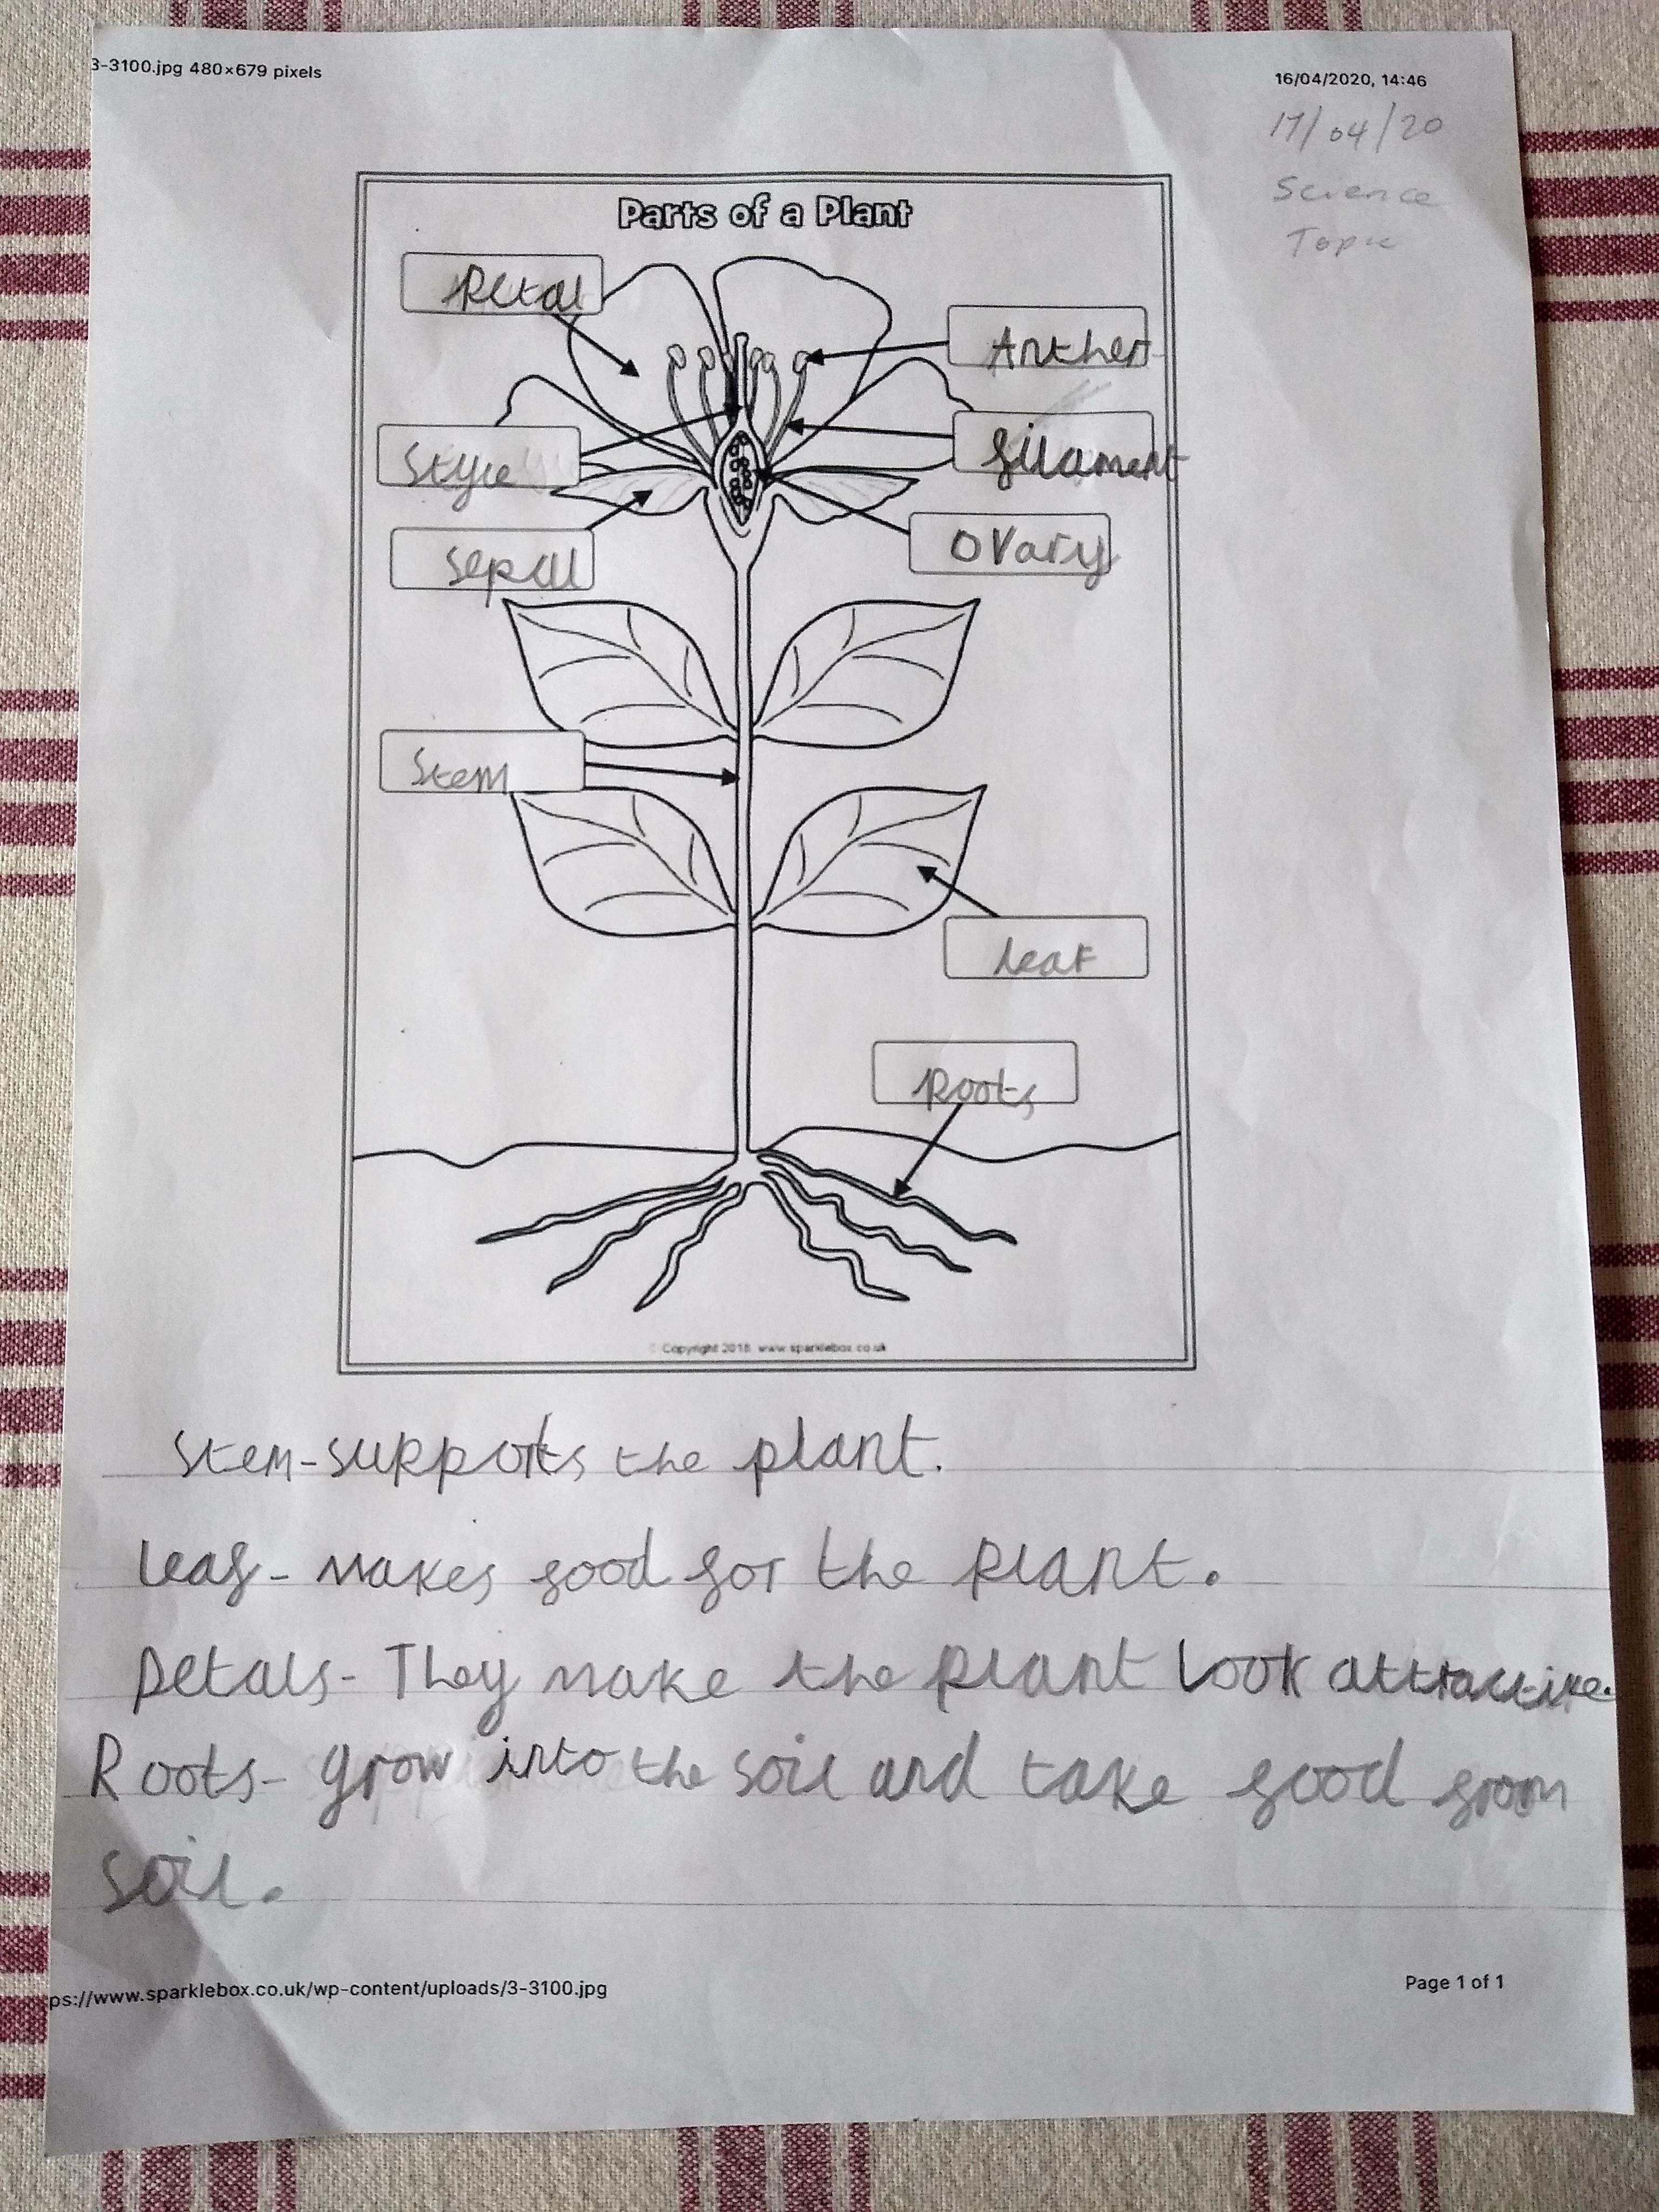 3-3100.jpg 480×679 pixels
16/04/2020, 14:46
17/04/20
Science
Topic
Parts of a Plant
Petal
Anther
Style
filament
Sepal
Ovary
Stem
leaf
Roots
© Copyright 2018 www.sparklebox.co.uk
Stem-supports the plant.
leaf- makes food for the plant.
Petals- They make the plant look attractive.
Roots- grow into the soil and take food from
soil.
ps://www.sparklebox.co.uk/wp-content/uploads/3-3100.jpg
Page 1 of 1